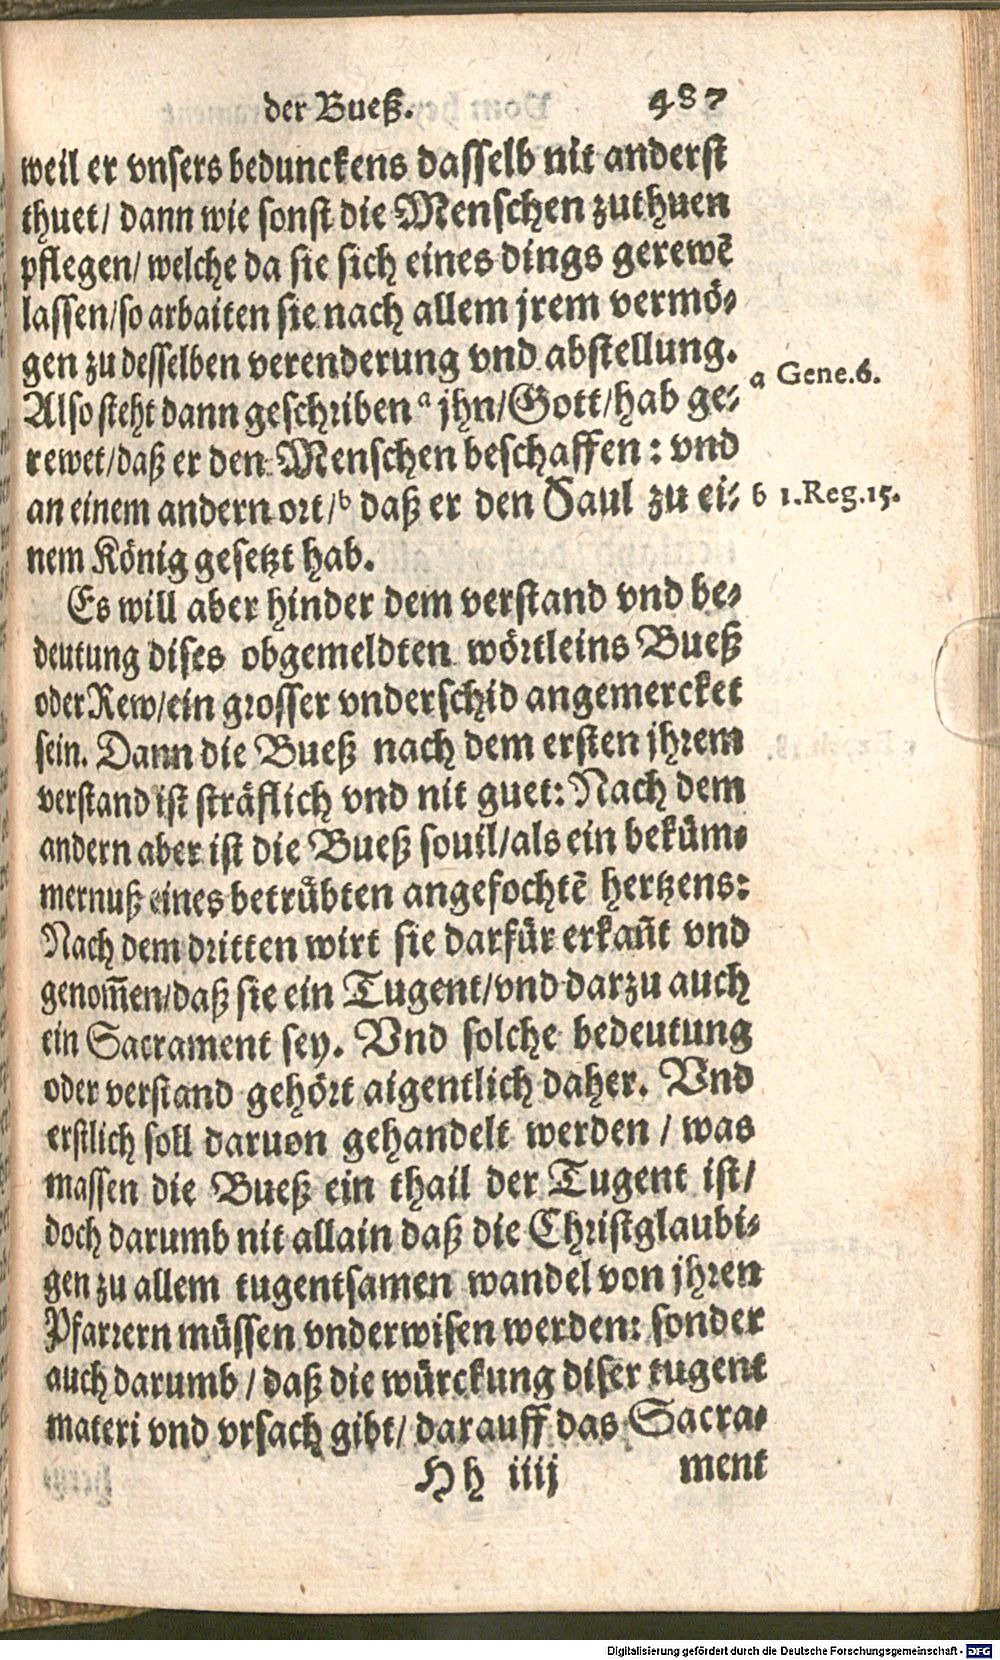 der Bueß. 487
weil er vnsers beduncke​ns dasselb nit anderst
thuet/ dann wie sonst die Menschen zuthuen
pflegen/ welche da sie sich eines dings gerewẽ
lassen/so arbaiten sie nach allem jrem vermö⸗
gen zu desselben verenderung vnd abstellung.
Also steht dann geschriben ᵃ jhn/Gott/hab ge⸗
a Gene.6.
rewet/daß er den Menschen beschaffen: vnd
an einem andern ort/ᵇ daß er den Saul zu ei⸗
b 1.Reg.15.
nem König gesetzt hab.
Es will aber hinder dem verstand vnd be⸗
deutung dises obgemeldten wörtleins Bueß
oder Rew/ein grosser vnderschid angemercket
sein. Dann die Bueß nach dem ersten jhrem
verstand ist sträflich vnd nit guet: Nach dem
andern aber ist die Bueß souil/als ein beküm⸗
mernuß eines betrübten angefochtẽ hertzens:
Nach dem dritten wirt sie darfür erkañt vnd
genom̃en/daß sie ein Tugent/vnd darzu auch
ein Sacrament sey. Vnd solche bedeutung
oder verstand gehört aigentlich daher. Vnd
erstlich soll daruon gehandelt werden / was
massen die Bueß ein thail der Tugent ist/
doch darumb nit allain daß die Christglaubi⸗
gen zu allem tugentsamen wandel von jhren
Pfarrern müssen vnderwisen werden: sonder
auch darumb / daß die würckung diser tugent
materi vnd vrsach gibt/ darauff das Sacra⸗
Hh iiij ment
Digitalisierung gefördert durch die Deutsche Forschungsgemeinschaft - DFG